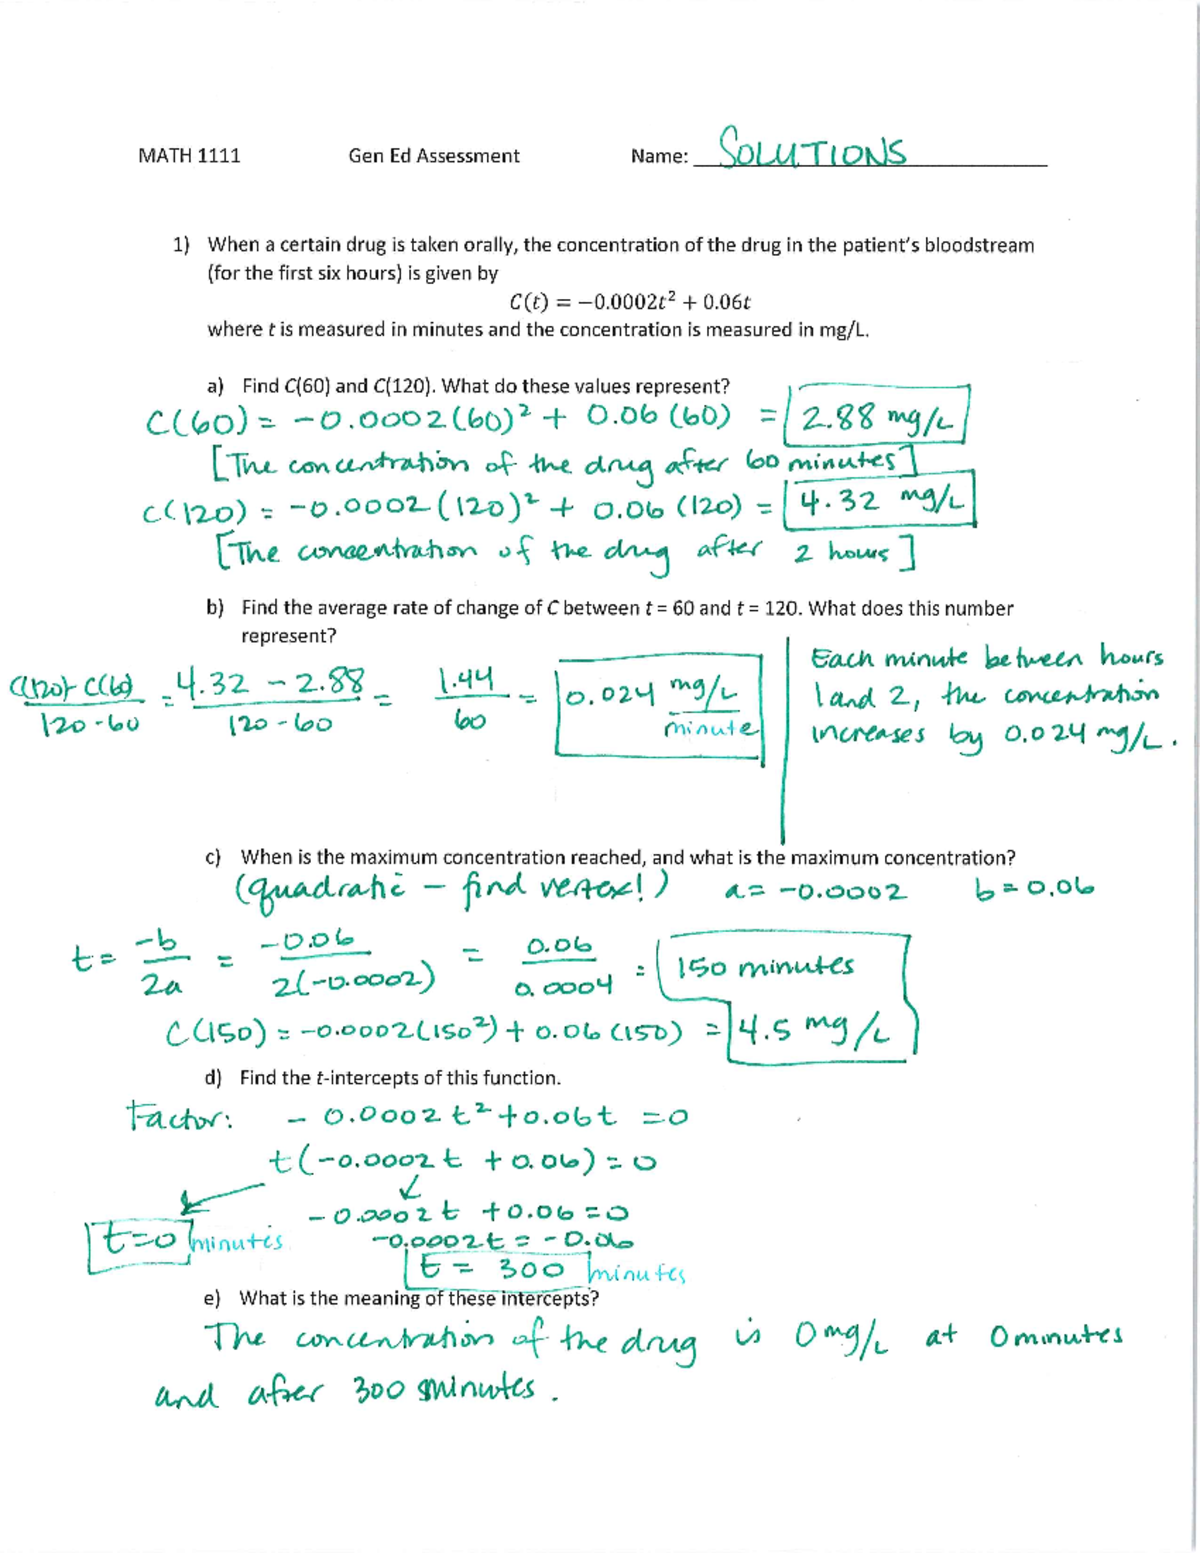 MATH 1111 Gen Ed Assessment Name: SOLUTIONS
1) When a certain drug is taken orally, the concentration of the drug in the patient's bloodstream
(for the first six hours) is given by
C(t) = −0.0002t² + 0.06t
where t is measured in minutes and the concentration is measured in mg/L.
a) Find C(60) and C(120). What do these values represent?
C(60) = -0.0002(60)² + 0.06(60) = 2.88 mg/L
[The concentration of the drug after 60 minutes]
C(120) = -0.0002(120)² + 0.06(120) = 4.32 mg/L
[The concentration of the drug after 2 hours]
b) Find the average rate of change of C between t = 60 and t = 120. What does this number
represent?
C(120)-C(60) / 120-60 = 4.32 - 2.88 / 120-60 = 1.44 / 60 = 0.024 mg/L / minute
Each minute between hours
1 and 2, the concentration
increases by 0.024 mg/L.
c) When is the maximum concentration reached, and what is the maximum concentration?
(quadratic - find vertex!) a = -0.0002 b = 0.06
t = -b / 2a = -0.06 / 2(-0.0002) = 0.06 / 0.0004 = 150 minutes
C(150) = -0.0002(150²) + 0.06(150) = 4.5 mg/L
d) Find the t-intercepts of this function.
Factor: - 0.0002t² + 0.06t = 0
t(-0.0002t + 0.06) = 0
-0.0002t + 0.06 = 0
t=0 minutes -0.0002t = -0.06
t = 300 minutes
e) What is the meaning of these intercepts?
The concentration of the drug is 0 mg/L at 0 minutes
and after 300 minutes.